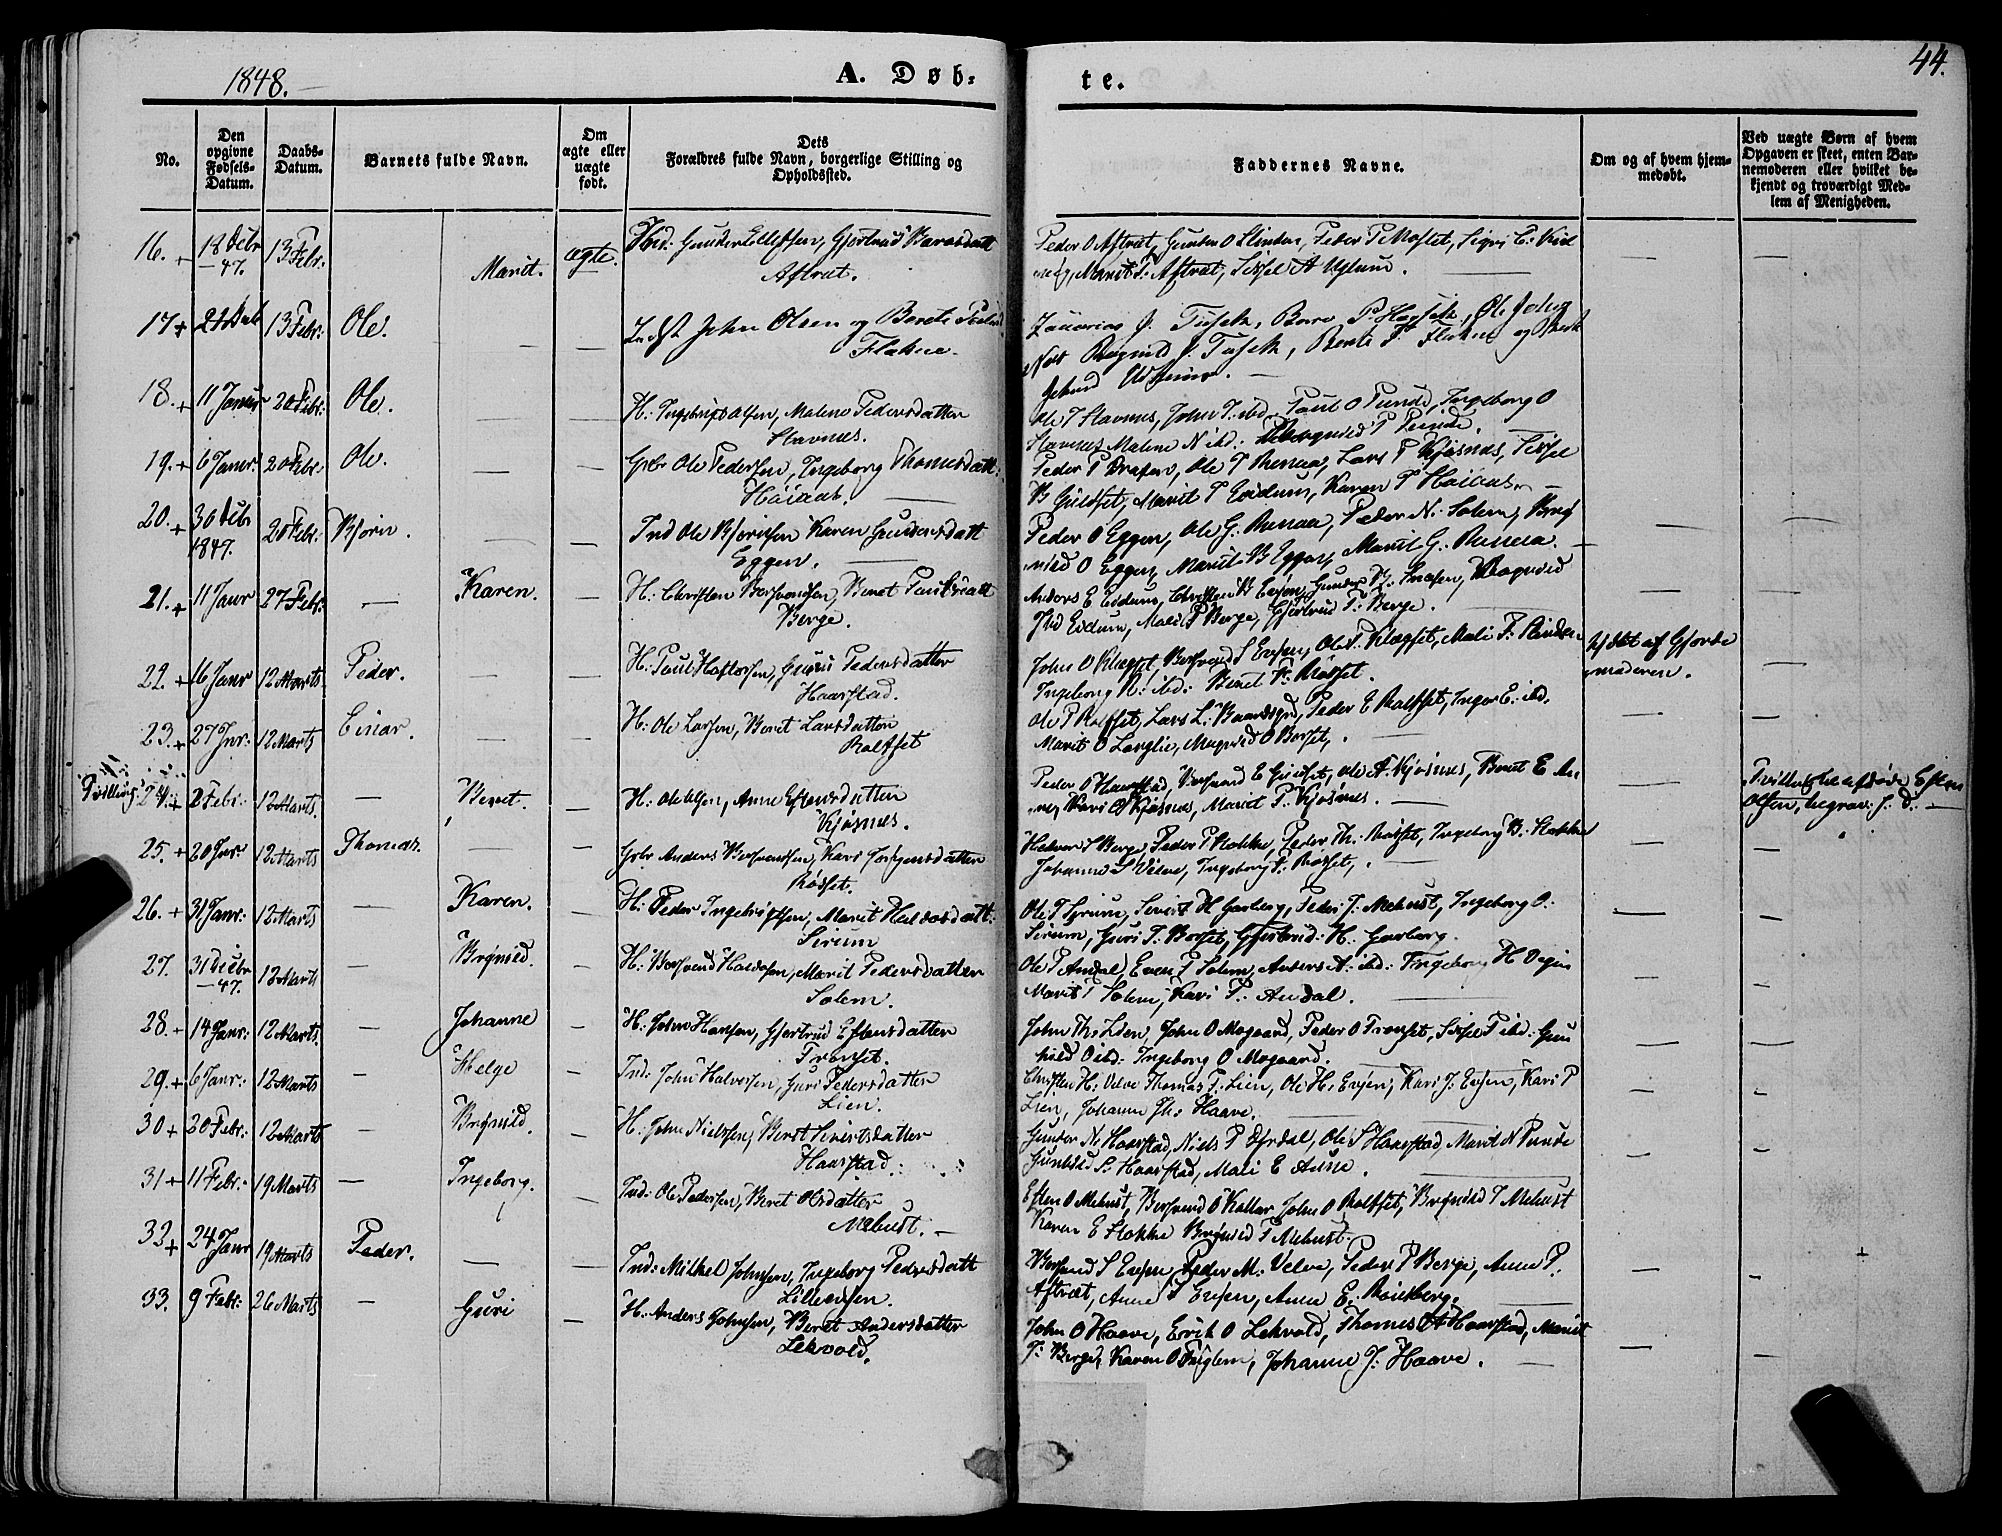 1848.
A. Døb-
te.
44.
No.
Den opgivne Fødsels-Datum.
Daabs-Datum.
Barnets fulde Navn.
Om ægte eller uægte født.
Dets Forældres fulde Navn, borgerlige Stilling og Opholdssted.
Faddernes Navne.
Om og af hvem hjem-medøbt.
Ved uægte Børn af hvem Opgaven er skeet, enten Bar-nemoderen eller hvilket be-kjendt og troværdigt Med-lem af Menigheden.
16. + 18 Debr —47. 13 Febr: Marit. ægte.
Aftræt.
Peder O Aftræt, Gunder O Slinden, Peder P Mostet,
Marit P: Aftræt, Sissel A Uglum.
17 + 13 Febr: Ole. — —
John Olsen og Berete
Flakne.
18. + 11 Januar 20 Febr: Ole. — —
H: Ingebrigt Olsen, Malene Pedersdatter
Stavnes.
Ole T Stavnes, John T: ibd. Paul O Punde, Ingeborg O
Stavnes Malene N ibd:
19. + 6 Janr: 20 Febr. Ole. — —
Gbr Ole Pedersen, Ingeborg Thomasdatt:
Høiaas.
Ole T Renaa, Lars P Kjøsnes, Sissel
Marit T Eidum, Karen P Høiaas.
20. + 30 Debr 1847. 20 Febr: Bjørn. — —
Ind Ole Bjørnsen Karen Gundersdatt
Eggen.
Peder O Eggen, Ole G. Renaa, Peder N: Solem, Brø
nild O Eggen, Marit B Eggen, Marit G: Renaa.
21. + 11 Janr 27 Febr: — Karen. —
H: Christen Bersvendsen, Beret
Berge.
Anders E Eidum,
Eidum, Mali P Berge, Gjertrud P: Berge.
22. + 16 Janr 12 Marts Peder. — —
H: Paul Haftorsen, Guru Pedersdatter
Haarstad.
John O Klæpset, Bersvend S Evsen, Ole S. Klæpset, Mali P: Slinden
Ingeborg N: ibd: Beret P: Røsset.
af Gjorde
moderen.
23. + 27 Jnr: 12 Marts Einar. — —
H: Ole Larsen, Beret Larsdatter
Rolfset
Ole P Rolfset, Lars L: Peder E Rolfset, Inger E: ibd.
Marit O Langlie, Magnild O Borset,
Tvilling
24 + 2 Febr: 12 Marts. — Beret. —
H: Ole Olsen, Anne Estensdatter
Kjøsnes.
Peder O Haarstad, Ole A. Kjøsnes, Beret E An
ne, Kari O Kjøsnes, Marit P. Kjøsnes.
Esten
Olsen, begrav: s. d.
25. + 20 Jnr: 12 Marts Thomas. — —
Gbr Anders Bersvendsen, Kari Jørgensdatter
Røsset.
Halvor S Berge, Peder P Stokke, Peder Th. Røsset, Ingeborg B: Stokke
Johanne S Velve, Ingeborg P: Røsset,
26. + 31 Janr: 12 Marts — Karen. —
H: Peder Ingebrigtsen, Marit Halvorsdatt:
Sirum
Ole T Syrum, Sivert H Garberg, Peder J: Mehust, Ingeborg O:
Sirum, Guri T: Borset, Gjertrud: H: Garberg.
27. 31 Decbr —47. 12 Marts — Brønild. —
H: Bersvend Haldosen, Marit Pedersdatter
Solem.
Ole P Amdal, Even P Solem, Anders A: ibd: Ingeborg H
Marit P Solem, Kari P: Amdal.
28. 14 Janr: 12 Marts. — Johanne —
H: John Hansen, Gjertrud Estensdatter
Fronset.
John Th: Lien, John O Mogaard, Peder O Fronset, Sissel P ibd: Gun
hild O ibd: Ingeborg O Mogaard.
29. + 6 Janr: 12 Marts — Helge —
Ind: John Halvorsen, Guri Pedersdatter
Lien.
Christen H: Velve Thomas P: Lien, Ole H: Evjen, Kari J: Evjen, Kari P
Lien, Johanne Th: Haave.
30 + 20 Febr: 12 Marts — Brønild. —
H: John Nielsen, Beret Sivertsdatter
Haarstad.
Gunder N Haarstad, Niels P Ole S Haarstad, Marit N Punde
Gunhild S: Haarstad, Mali E Aune.
31 + 11 Febr: 19 Marts — Ingeborg. —
Ind: Ole Pedersen, Beret Olsdatter
Mehust.
Esten O Mehust, Bersvend O Kallar, John O Rolfset, Brønild T Mehust
Karen E Stokke Brønild P Mehust.
32 + 24 Janr 19 Marts Peder. — —
Ind: Mikkel Johnsen, Ingeborg Pedersdatt
Lilleevjen.
Bersvend S Evjen, Peder M: Velve, Peder P Berge, Anne P:
Aftræt, Anne S Evjen, Anne E.
33. 9 Febr: 26 Marts — Guri —
H: Anders Johnsen, Beret Andersdatter
Lekvold.
John O Haave, Erik O Lekvold, Thomas A Haarstad, Marit
T: Berge, Karen O Fuglem, Johanne J: Haave.